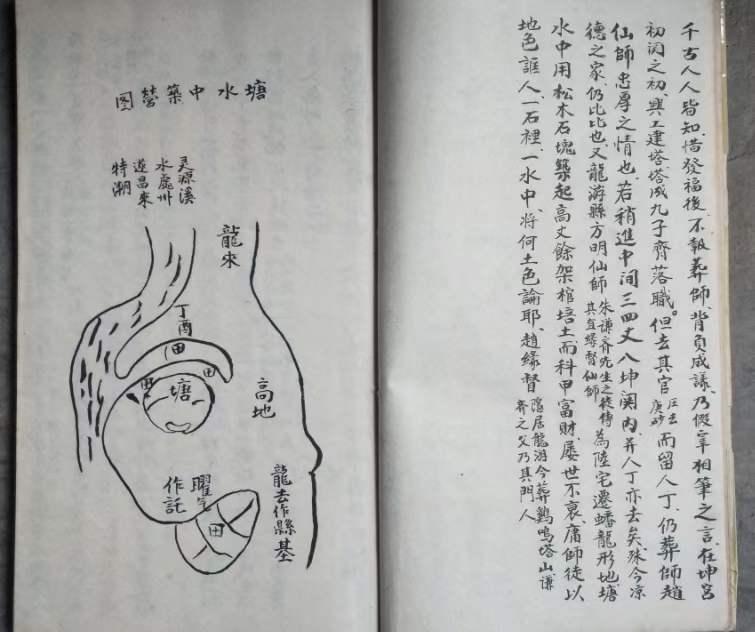 千古人人皆知、惜發福後、不報葬師、背負成議、乃假宰相筆之言、在坤宮
初闪之初、興工建塔、塔成九子齊落職。但去其官
压去
庚砂
而留人丁、仍葬師趙
仙師忠厚之情也、若稍進中间三四丈、八坤関內、并人丁亦去矣、殊今凉
德之家、仍比比也、又龍游縣方明仙師
朱谦齐先生之徒侍
其直緣督仙師
為陸宅遷蟠龍形地、塘
水中用松木石塊築起高丈餘架棺培土、而科甲富財、屡世不衰、庸師徒以
地色誑人、一石裡、一水中、将何土色論耶、趙緣督
隐居龍游今葬鷄鳴塔山谦
齐之父乃其門人
塘水中築塋图
灵源溪
水處州
遂昌來
特潮
龍來
丁酉
田
田
田
塘
高地
龍去作縣基
曜
作託
田